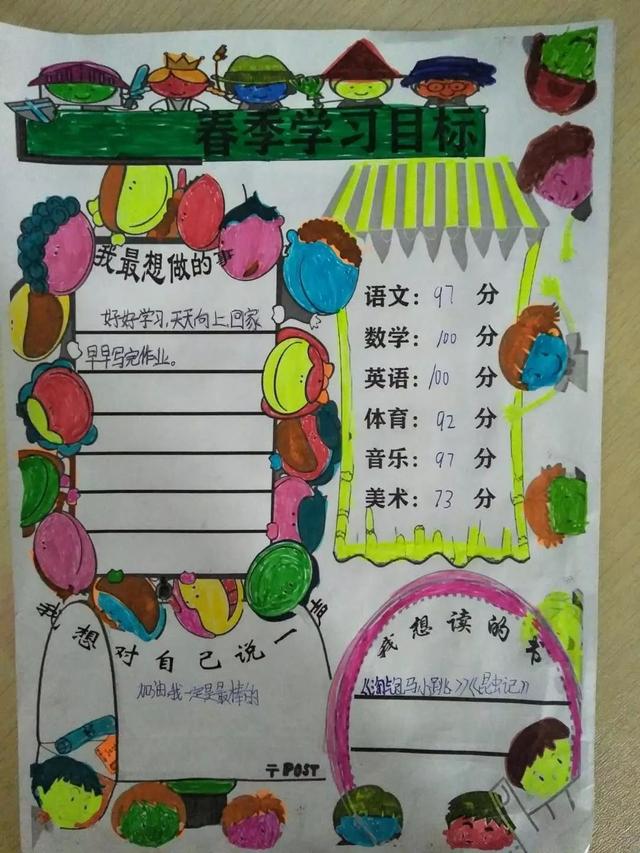 春季学习目标
我最想做的事
好好学习,天天向上,回家
早早写完作业。
语文：97 分
数学：100 分
英语：100 分
体育：92 分
音乐：97 分
美术：73 分
我想对自己说一声
加油我一定是最棒的
〒POST
我想读的书
《淘气包马小跳》《昆虫记》